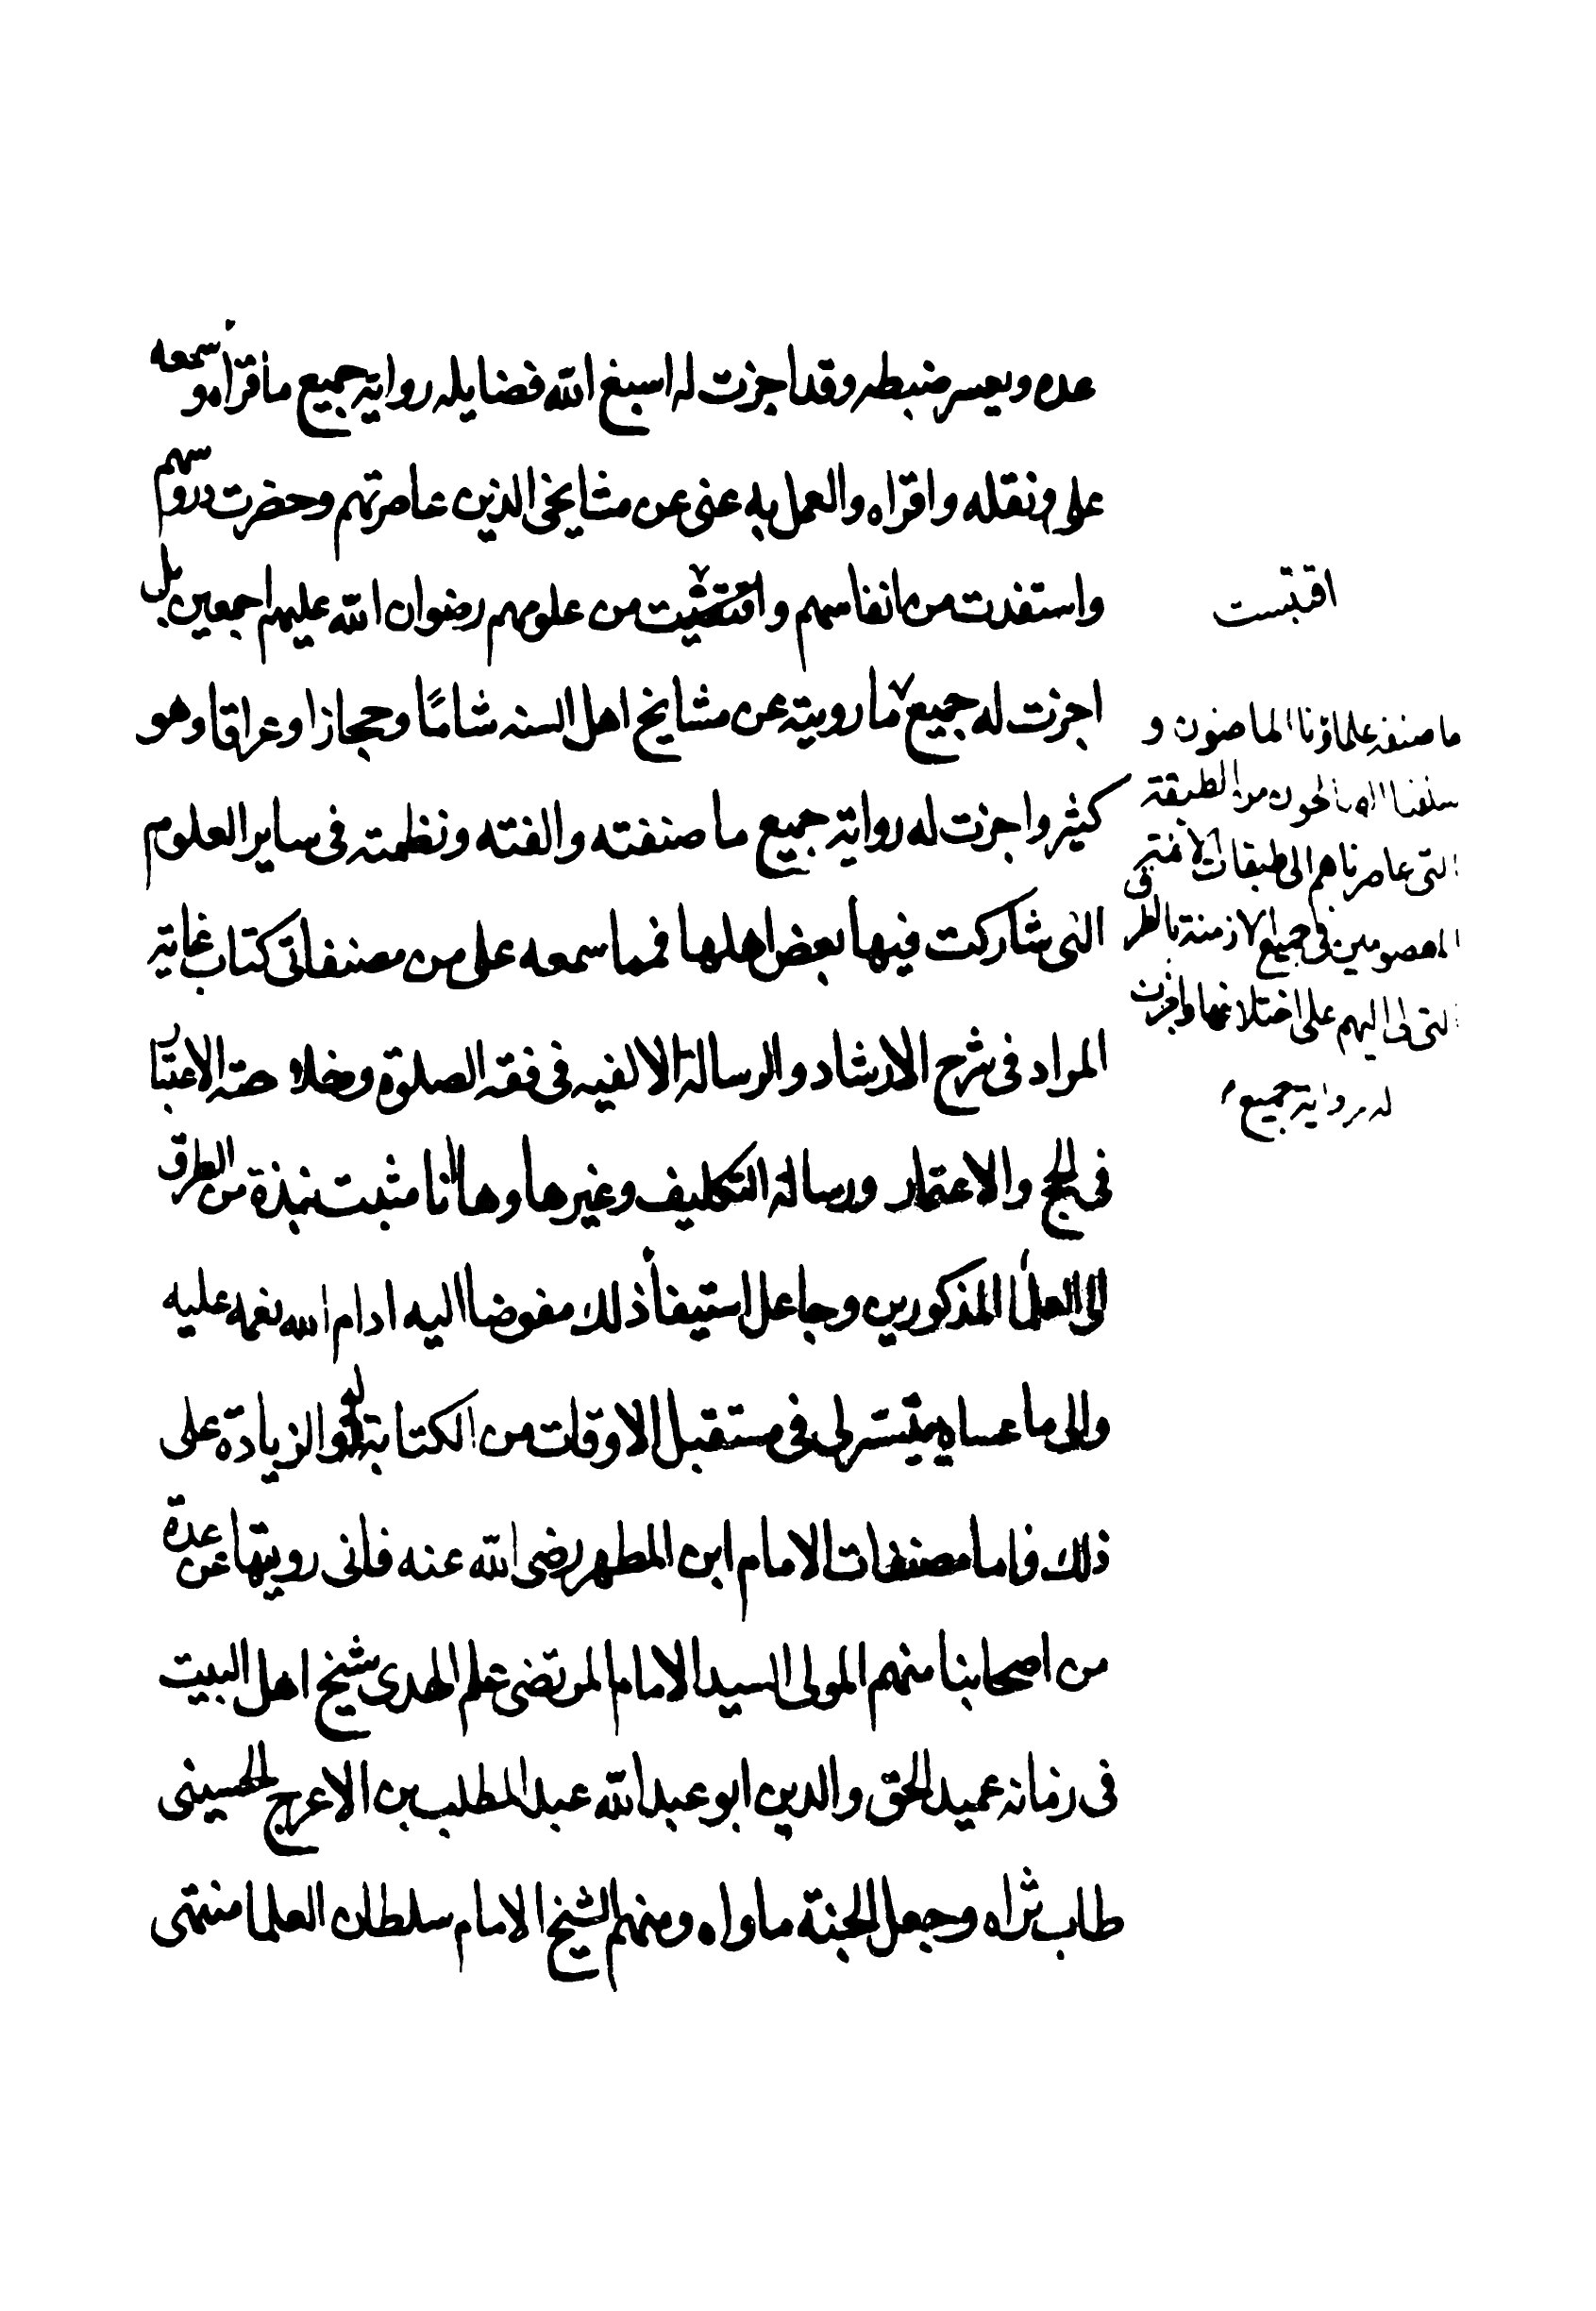 عده ويعسر ضبطه وقد اجزت له اسبغ الله فضايله رواية جميع ما قراه وسمعه
على ونقله واقراه والعمل به عنى عن مشايخى الذين عاصرتهم وحضرت دروسهم
واستفدت من انفاسهم و من علومهم رضوان الله عليهم اجمعين بل
اجزت له جميع ما رويته عن مشايخ اهل السنه شاما وحجازا وعراقا وهو
كثير واجزت له رواية جميع ما صنفته والفته ونظمته فى ساير العلوم
التى شاركت فيها بعض اهلها فمما سمعه على من مصنفاتى كتاب غاية
المراد فى شرح الارشاد والرسالة الالفيه فى فقه الصلوة وخلاصة الاعتبار
فى الحج والاعتمار ورسالة التكليف وغيرها وها انا مثبت نبذة من الطرق
الى العلما المذكورين وجاعل استيفا ذلك مفوضا اليه ادام الله نعمه عليه
والى ما عساه يتيسر لى فى مستقبل الاوقات من الكتابة له والزيادة على
ذلك فاما مصنفات الامام ابن المطهر رضى الله عنه فانى رويتها عن عدة
من اصحابنا منهم المولى السيد الامام المرتضى علم الهدى شيخ اهل البيت
فى زمانه عميد الحق والدين ابو عبد الله عبد المطلب بن الاعرج الحسينى
طاب ثراه وجعل الجنة ماواه ومنهم الشيخ الامام سلطان العلما منتهى
اقتبست
ما صنفه علماؤنا الماضون و
سلفنا الصالحون من الطبقة
التى عاصرناهم الى طبقات الائمة
المعصومين فى جميع الازمنة بالطرق
التى لى اليهم على اختلافها واجزت
له رواية جميع